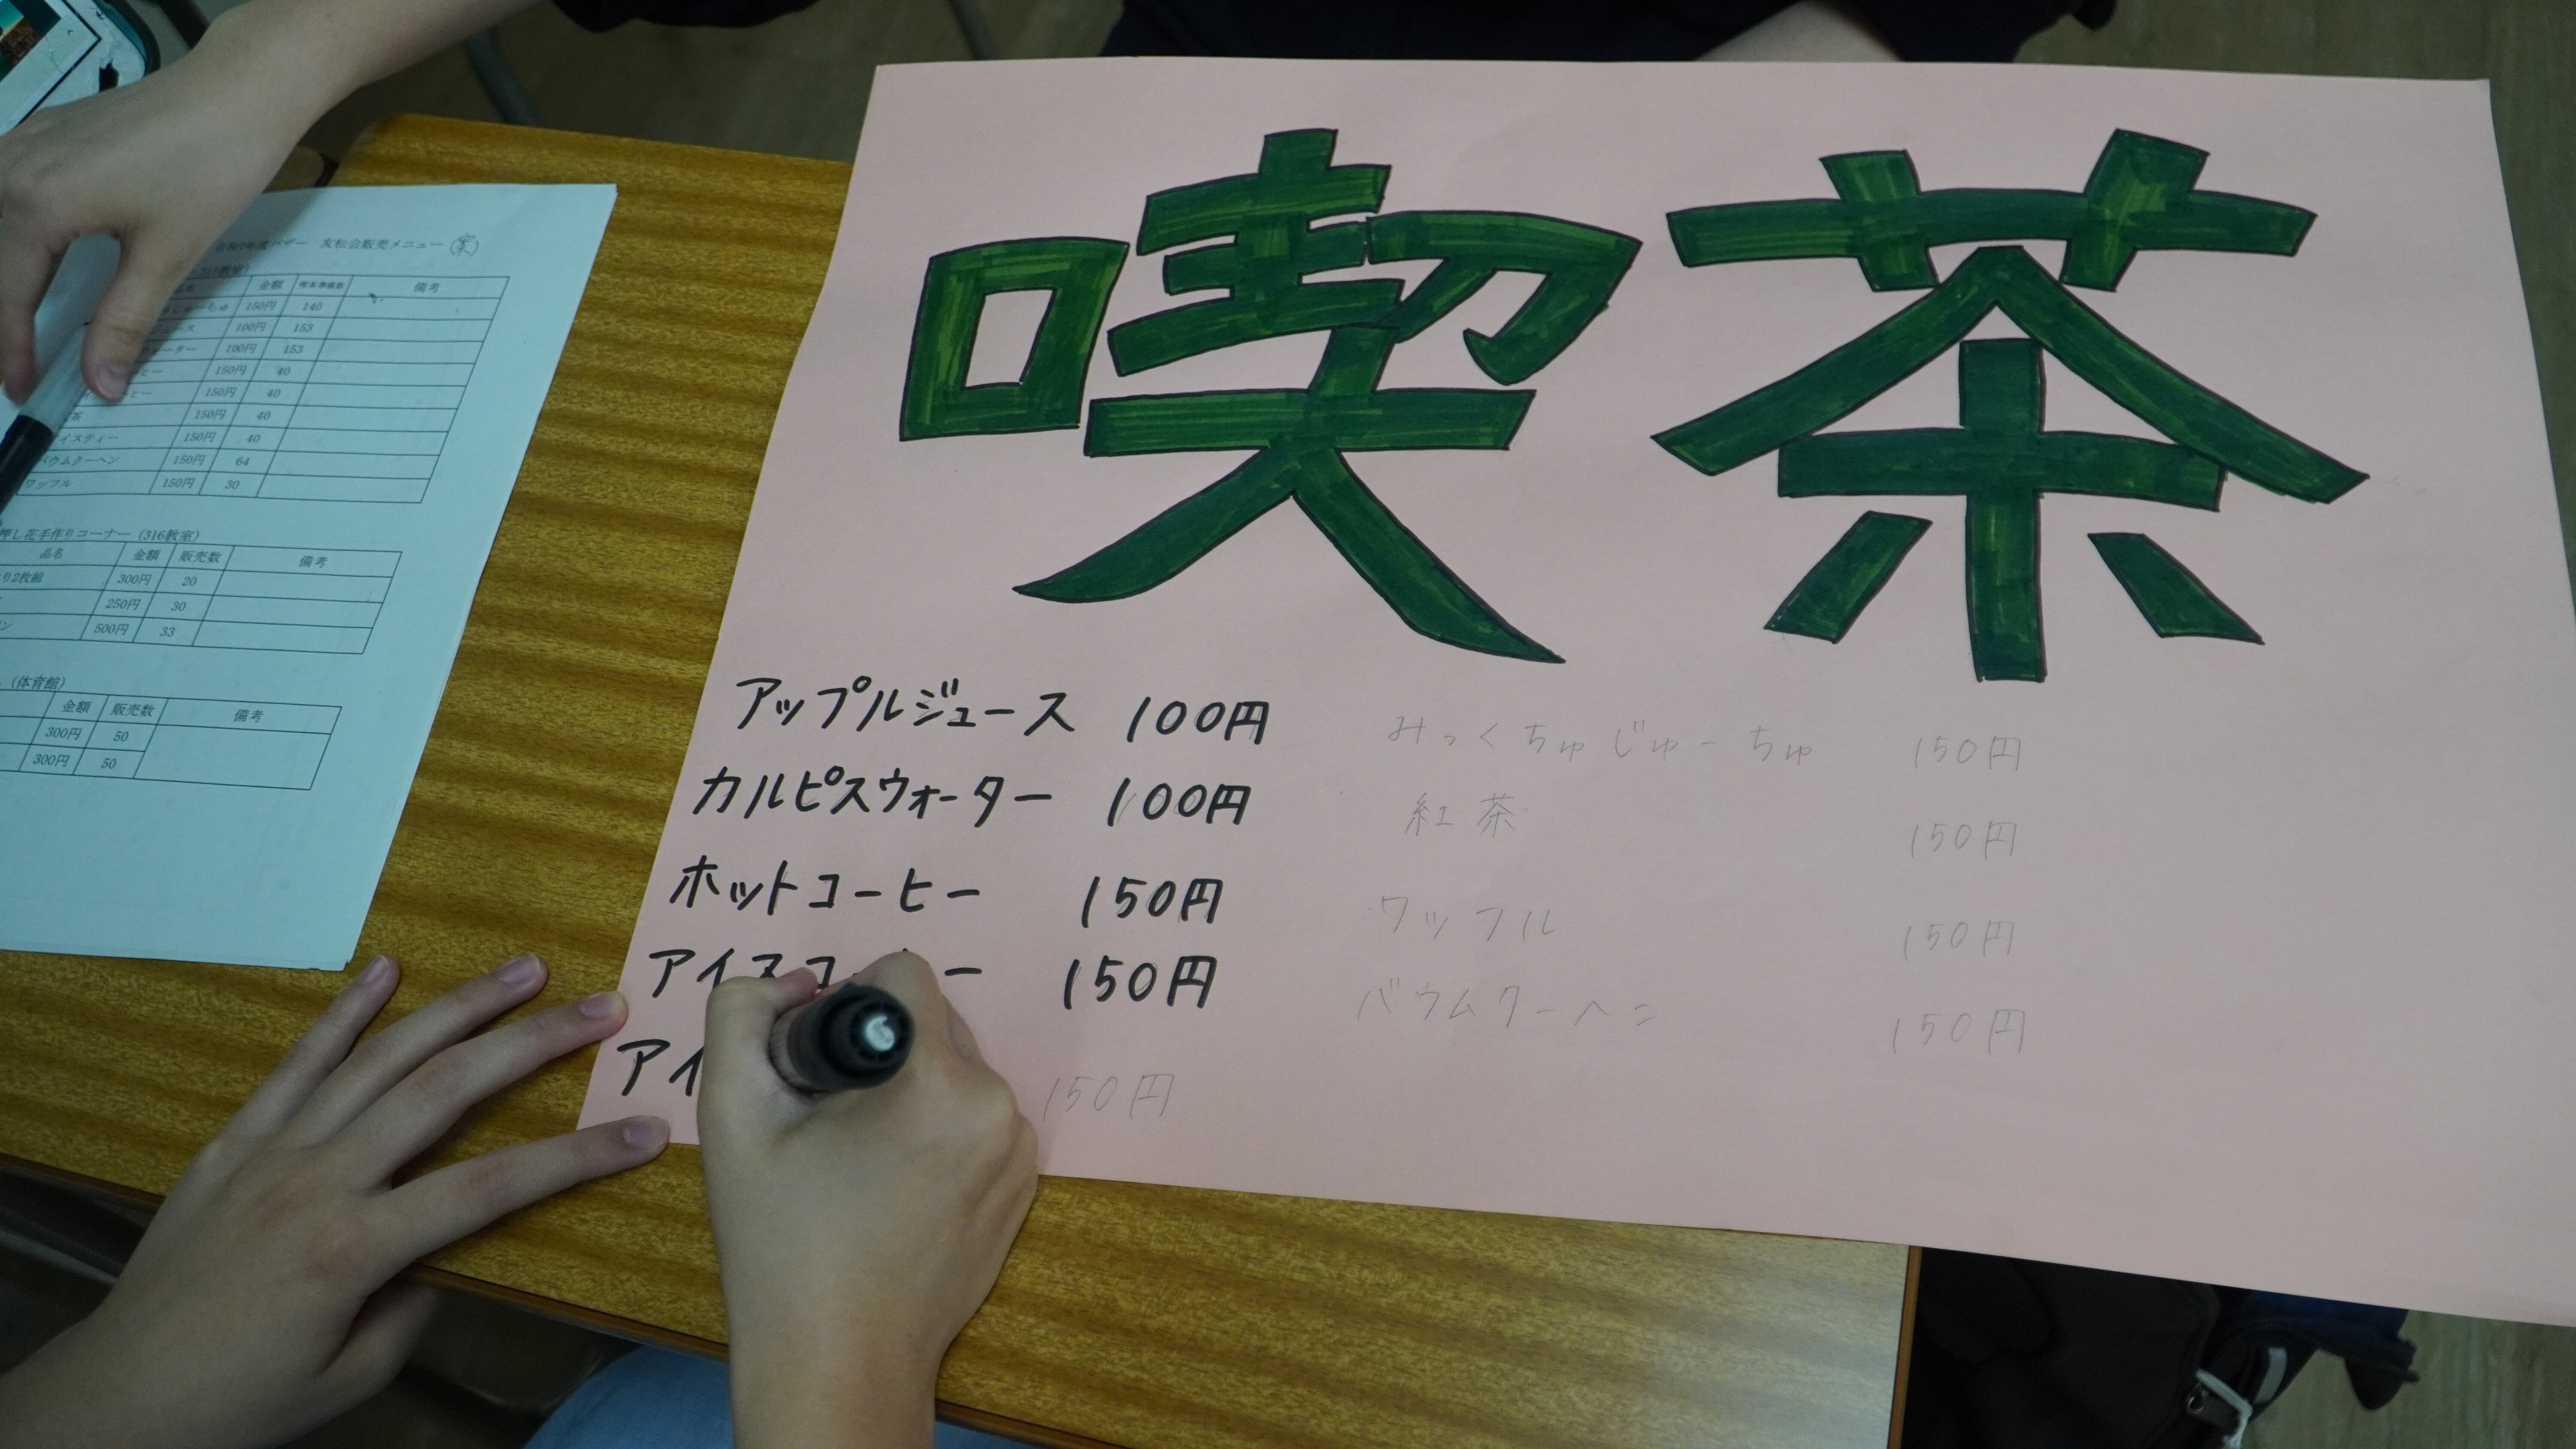 令和7年度バザー 友松会販売メニュー
315教室)
金額 備考
150円 140
100円 153
100円 153
150円 40
150円 40
茶 150円 40
イスティー 150円 40
バウムクーヘン 150円 64
ワッフル 150円 30
押し花手作りコーナー (316教室)
品名 金額 販売数 備考
り2枚組 300円 20
250円 30
ン 500円 33
(体育館)
金額 販売数 備考
300円 50
300円 50
喫茶
アップルジュース 100円
カルピスウォーター 100円
ホットコーヒー 150円
アイスコー 150円
アイ 150円
みっくちゅじゅーちゅ 150円
紅茶 150円
ワッフル 150円
バウムクーヘン 150円